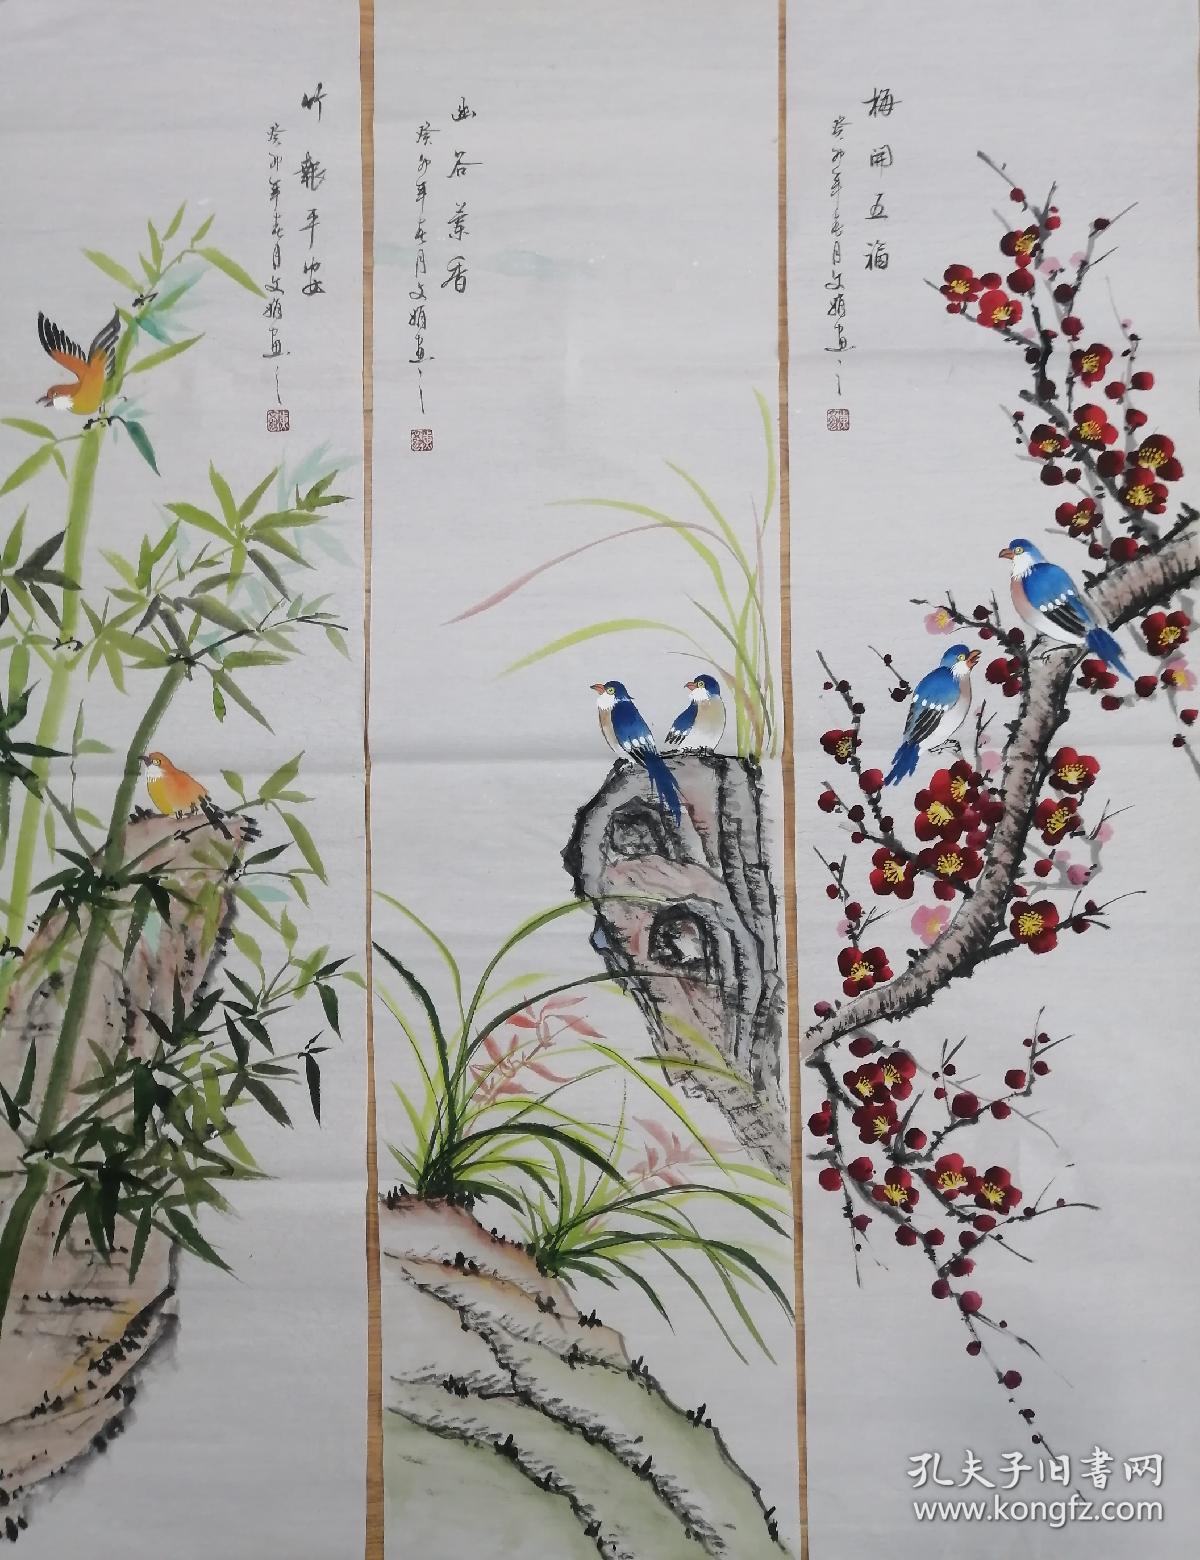 梅開五福
癸卯年春月文娟画之
幽谷兰香
癸卯年春月文娟画之
竹報平安
癸卯年春月文娟画之
孔夫子旧書网
www.kongfz.com